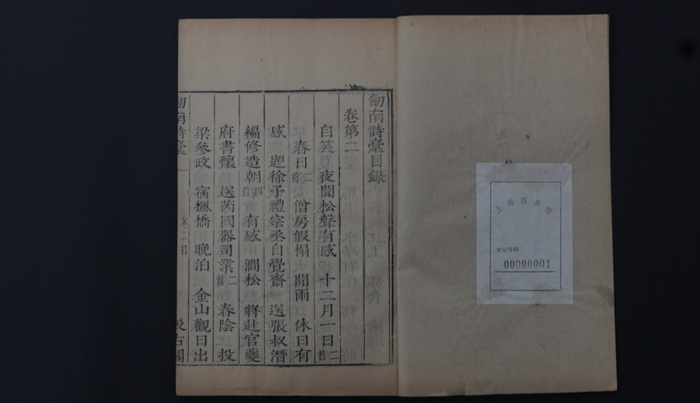 劒南詩稾目錄
卷第二
自笑 夜聞松聲有感 十二月一日二首
春日二首 僧房假榻 聞雨 休日有
感 題徐子禮宗丞自覺齋 送張叔潛
編修造朝 有感 澗松 將赴官夔
府書懷 送芮國器司業二首 春陰 投
梁參政 宿楓橋 晚泊 金山觀日出
劒南詩稾
卷二目
汲古閣
00000001